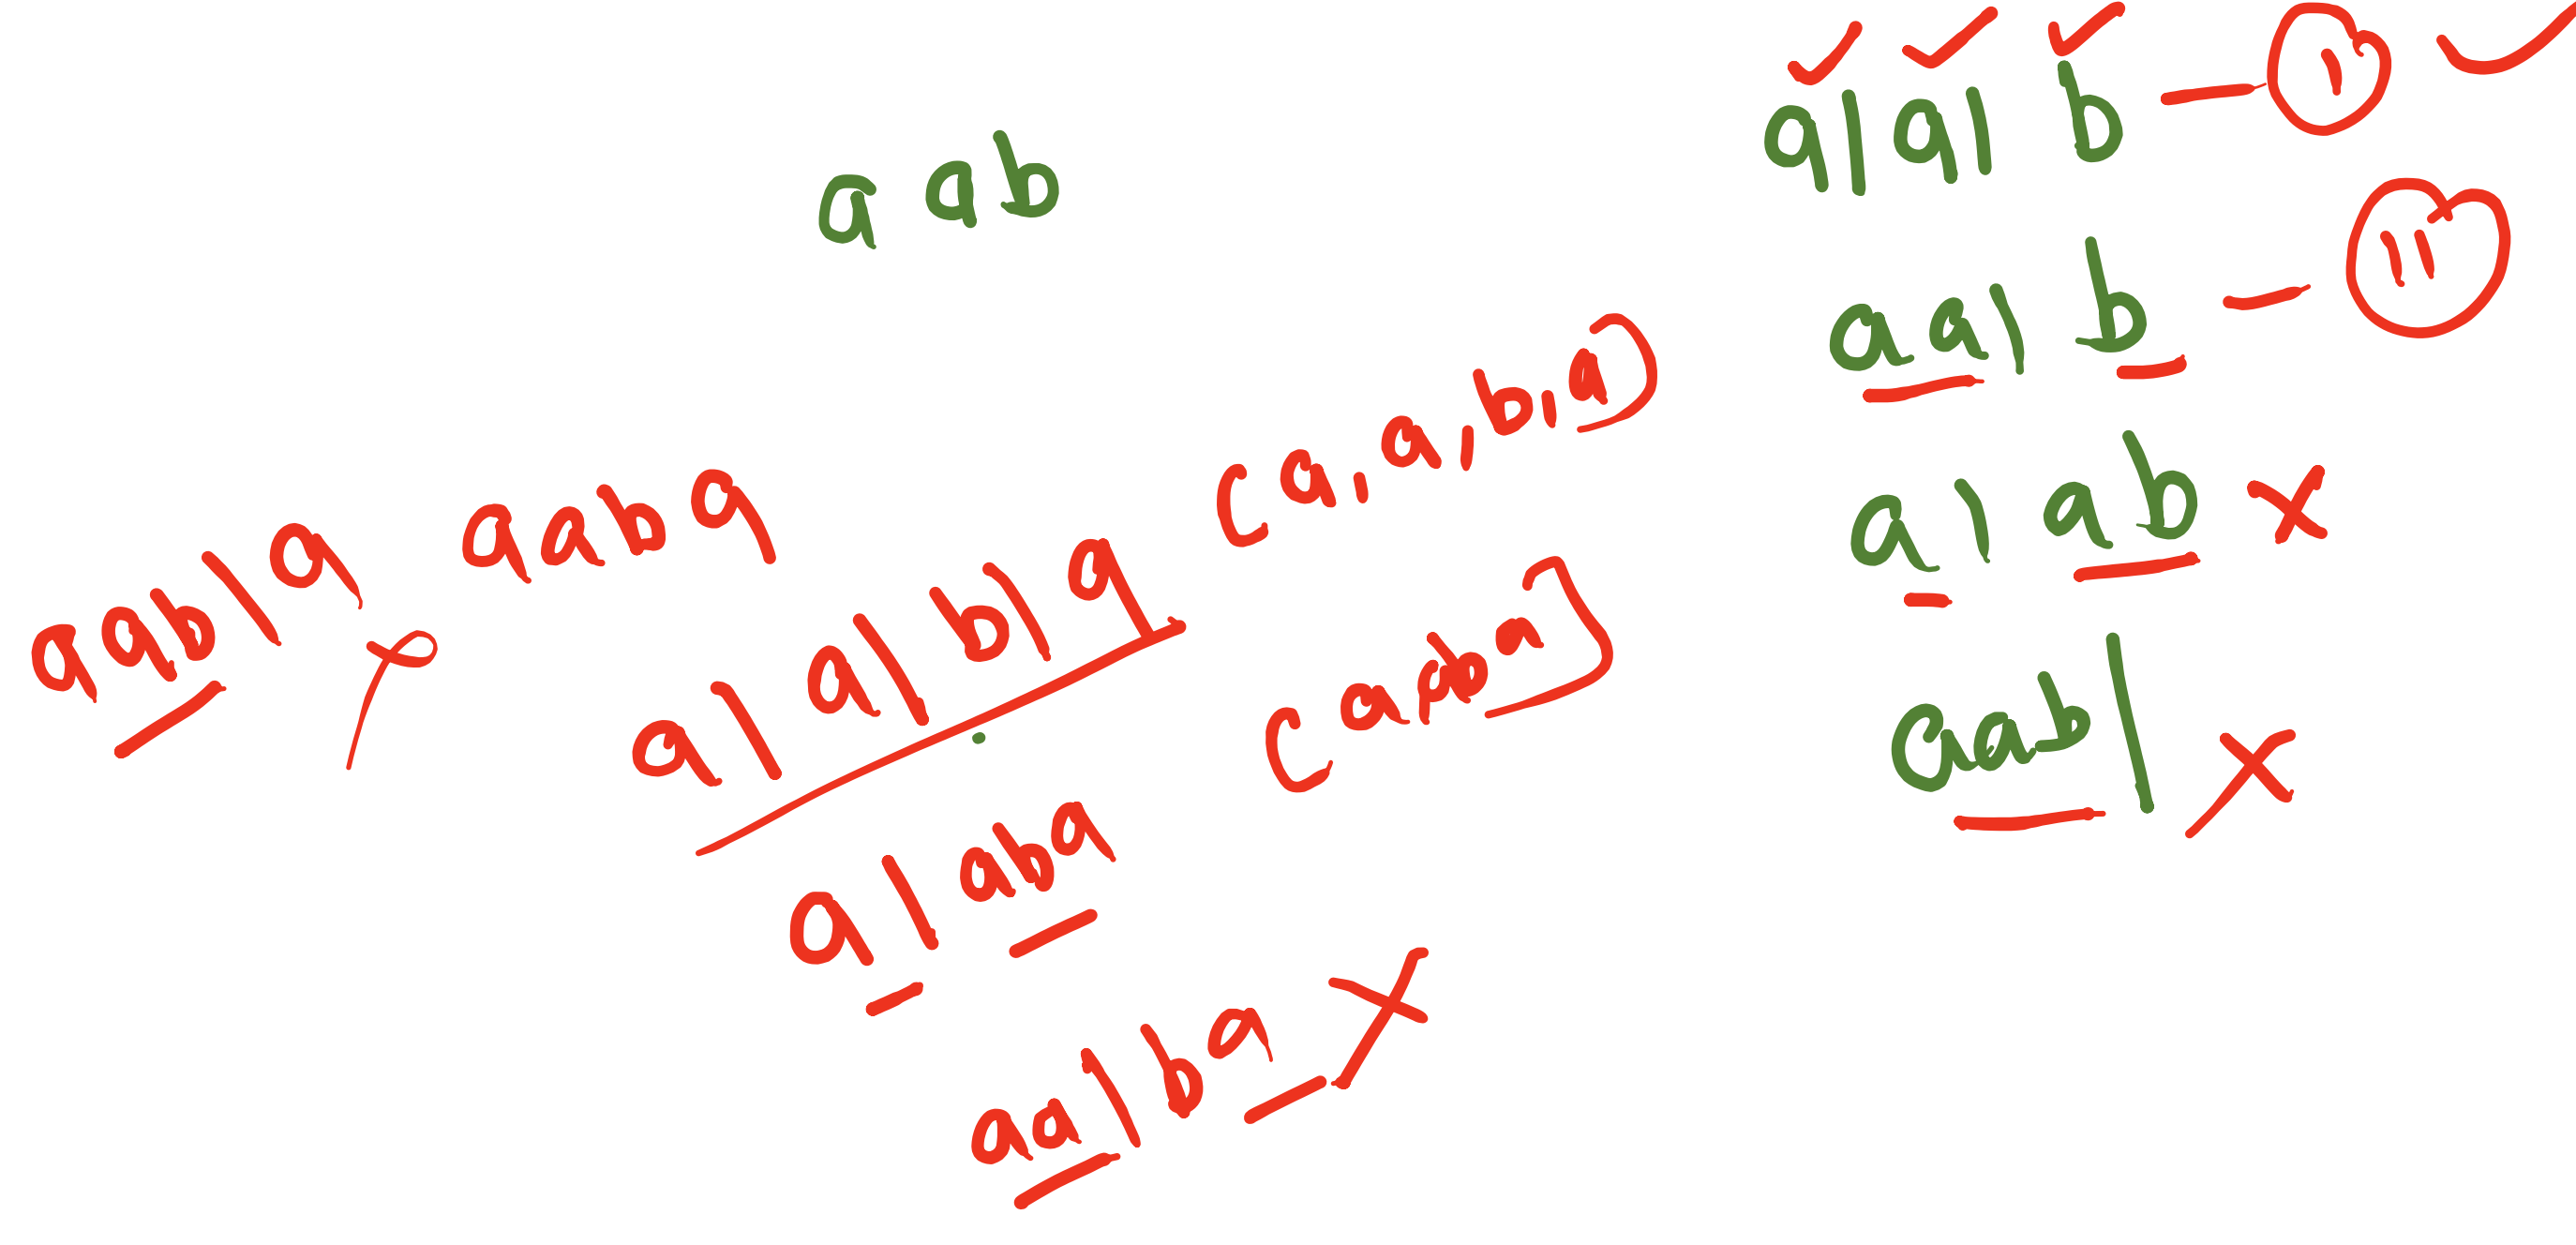 aab
a|a|b — 1
aa|b — 11
a|ab x
aab| x
aaba
[a,a,b,a]
aab|a
a|a|b|a
[a,aba]
a|aba
aa|ba x